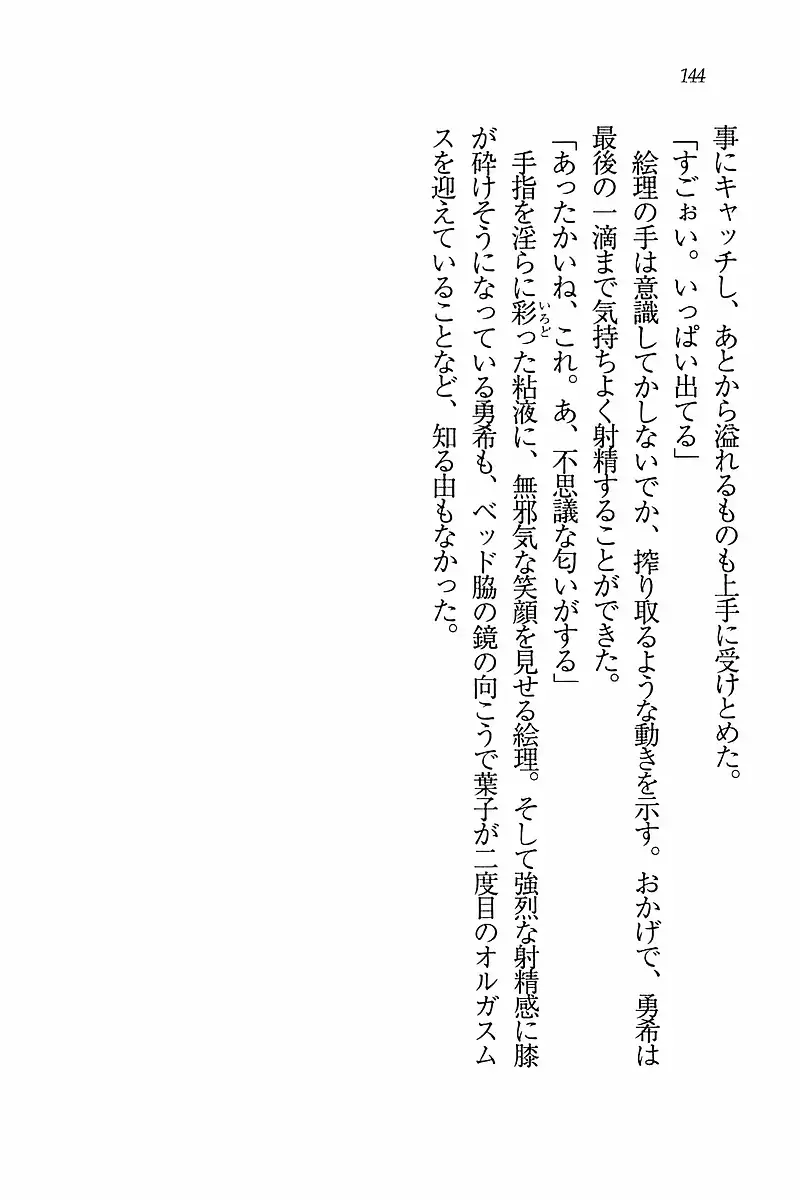 144
事にキャッチし、あとから溢れるものも上手に受けとめた。
「すごぉい。いっぱい出てる」
絵理の手は意識してかしないでか、搾り取るような動きを示す。おかげで、勇希は
最後の一滴まで気持ちよく射精することができた。
「あったかいね、これ。あ、不思議な匂いがする」
手指を淫らに彩いろどった粘液に、無邪気な笑顔を見せる絵理。そして強烈な射精感に膝
が砕けそうになっている勇希も、ベッド脇の鏡の向こうで葉子が二度目のオルガスム
スを迎えていることなど、知る由もなかった。